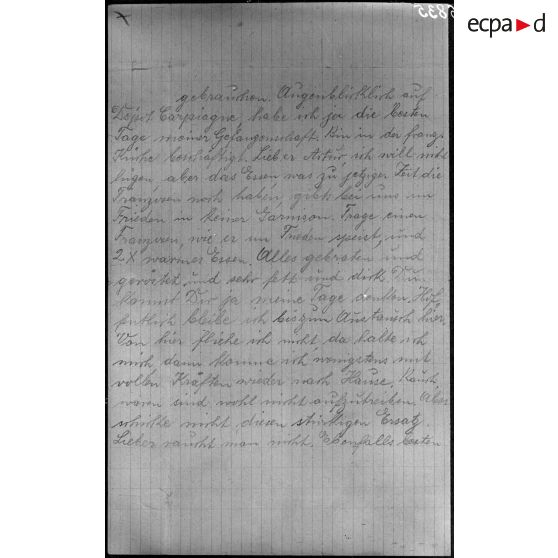 5835
ecpad
gebrauchen. Augenblicklich auf
Dépot Carpiagne, habe ich ja die besten
Tage meiner Gefangenschaft. Bin in der franz.
Küche beschäftigt. Lieber Artur, ich will nicht
lügen, aber das Essen was zu jetziger Zeit die
Franzosen noch haben, gibts bei uns im
Frieden in keiner Garnison. Frage einen
Franzosen, wie er im Frieden speist, und
2 X warmes Essen. Alles gebraten und
geröstet, und sehr fett und dick. Du
kannst Dir ja meine Tage denken. Hof-
fentlich bleibe ich bis zum Austausch hier.
Von hier fliehe ich nicht, da halte ich
mich, dann komme ich wenigstens mit
vollen Kräften wieder nach Hause. Rauch
waren sind wohl nicht aufzutreiben. Also
schicke nicht diesen Ersatz.
Lieber raucht man nicht. Ebenfalls besten